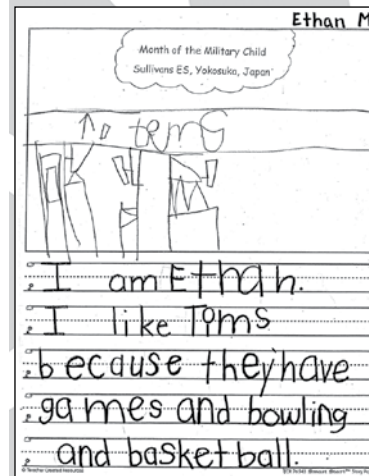 Ethan M
Month of the Military Child
Sullivans ES, Yokosuka, Japan
I am Ethan.
I like Tims
because they have
games and bowling
and basket ball.
© Teacher Created Resources